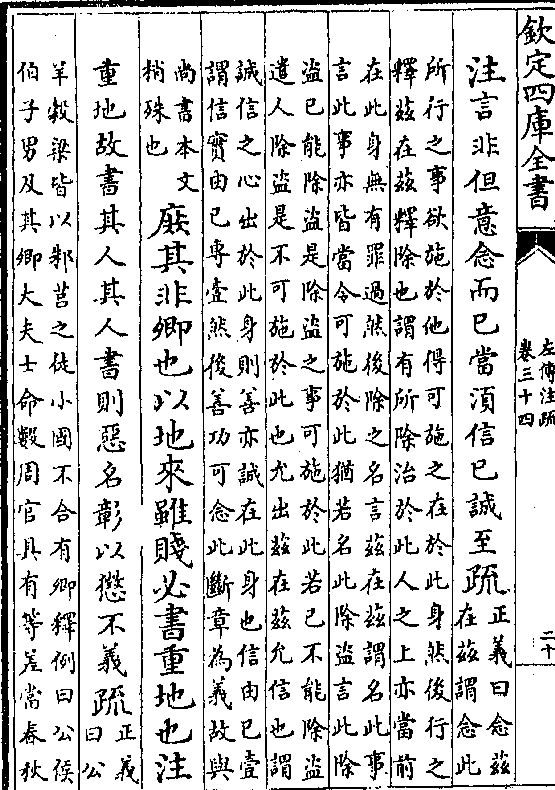 欽定四庫全書
左傳注疏
卷三十四
二十
注言非但意念而已當湏信已誠至疏
正義曰念茲
在茲謂念此
所行之事欲施於他得可施之在於此身然後行之
釋茲在茲釋除也謂有所除治於此人之上亦當前
在此身無有罪過然後除之名言茲在茲謂名此事
言此事亦皆當令可施於此猶若名此除盜言此除
盜已能除盜是除盜之事可施於此若已不能除盜
遣人除盜是不可施於此也允出茲在茲允信也謂
誠信之心出於此身則善亦誠在此身也信由已壹
謂信實由已專壹然後善功可念此斷章為義故與
尚書本文
稍殊也
庶其非卿也以地來雖賤必書重地也注
重地故書其人其人書則惡名彰以懲不義疏
正義
曰公
羊穀梁皆以邾莒之徒小國不合有卿釋例曰公侯
伯子男及其卿大夫士命數周官具有等差當春秋